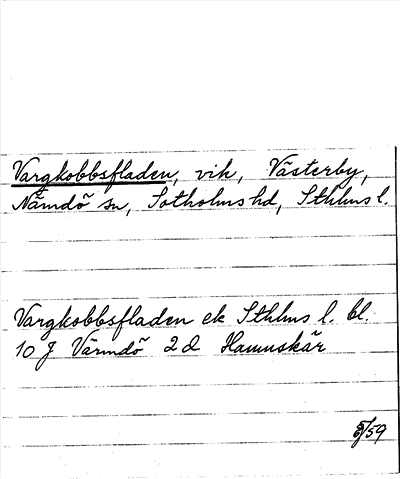 Vargkobbsfladen, vik, Västerby,
Nämdö sn, Sotholms hd, Sthlms l.
Vargkobbsfladen ek Sthlms l. bl.
10 J Värmdö 2d Hamnskär
/59